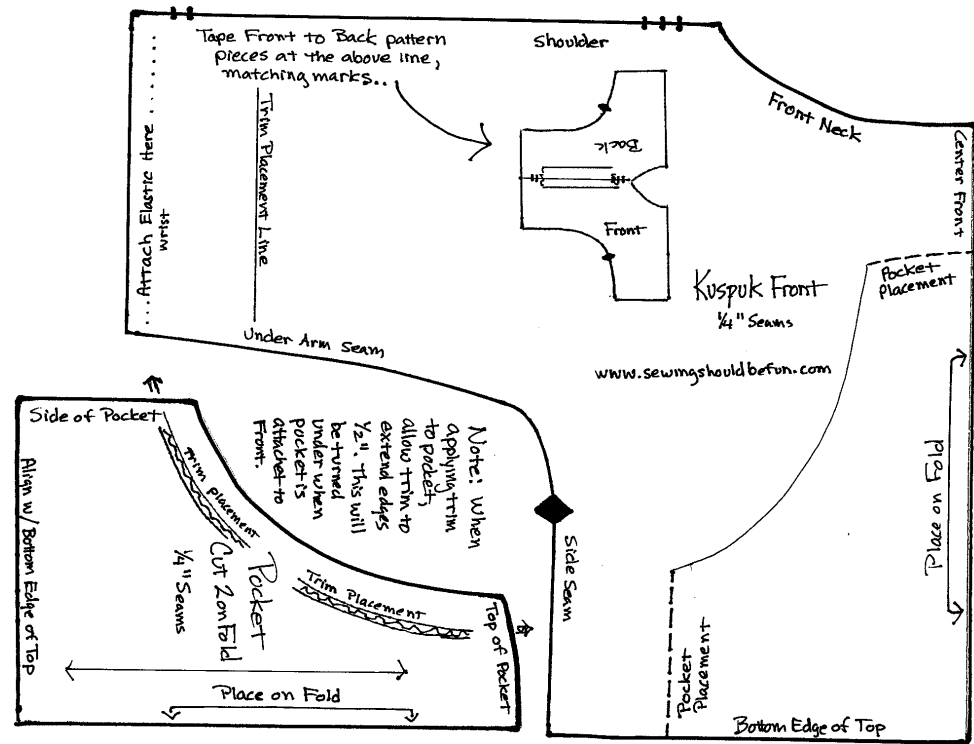 Tape Front to Back pattern
pieces at the above line,
matching marks..
Shoulder
Front Neck
Center Front
...Attach Elastic Here......
wrist
Trim Placement Line
Back
Front
Kuspuk Front
1/4" Seams
www.sewingshouldbefun.com
Pocket
Placement
Place on Fold
Under Arm Seam
Side of Pocket
Trim placement
Align w/ Bottom Edge of Top
Note: When
applying trim
to pocket,
allow trim to
extend edges
1/2". This will
be turned
under when
pocket is
attachet to
Front.
Pocket
Cut 2 on Fold
1/4" Seams
Trim Placement
Top of Pocket
Place on Fold
Side Seam
Pocket
Placement
Bottom Edge of Top